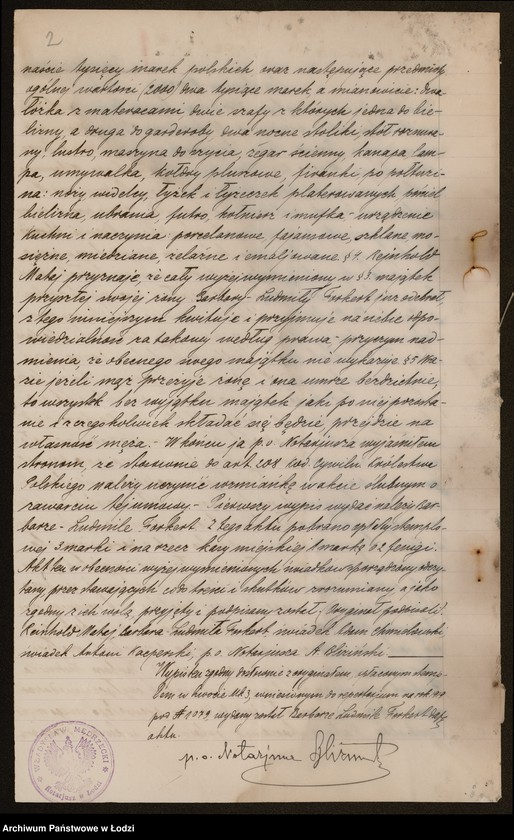 2
naście tysięcy marek polskich oraz następujące przedmioty
ogólnej wartości (2000) dwa tysiące marek a mianowicie: dwa
łóżka z materacami dwie szafy z których jedna do bie-
lizny, a druga do garderoby dwa nocne stoliki, stół rozsuwa-
ny, lustro, maszyna do szycia, zegar ścienny, kanapa, lam-
pa, umywalka, kołdry pluszowe, firanki, po półtuzi-
na: noży widelcy, łyżek i łyżeczek platerowanych pościel
bielizna, ubrania, futro, kołnierz i mufka urządzenie
kuchni i naczynia porcelanowe, fajansowe, szklane, mo-
siężne, miedziane, żelazne i emaljowane § 4. Reinhold
Matej przyznaje, że cały wyżej wymieniony w § 3. majątek
przyszłej swojej żony Barbary-Ludmiły Forkert już odebrał,
z tego niniejszym kwituje i przyjmuje na siebie odpo-
wiedzialność za takowy według prawa; przyczem nad-
mienia, że obecnego swego majątku nie wykazuje § 5 Wra-
zie jeżeli mąż przeżyje żonę i ona umrze bezdzietnie,
to wszystek bez wyjątku majątek jaki po niej pozosta-
nie i z czegokolwiek składać się będzie, przejdzie na
własność męża. - W końcu ja p.o. Notarjusza wyjaśniłem
stronom, że stosownie do art 208 kod. cywiln. Królestwa
Polskiego należy uczynić wzmiankę w akcie ślubnym o
zawarciu tej umowy - Pierwszy wypis wydać należy Bar-
barze-Ludmile Forkert. Z tego aktu pobrano opłaty stemplo-
wej 3 marki i na rzecz kasy miejskiej 1 markę 02 fenigi.
Akt ten w obecności wyżej wymienionych świadków sporządzony odczy-
tany przez stawających co do treści i skutków zrozumiany a jako
zgodny z ich wolą przyjęty i podpisany został. Oryginał podpisali:
Reinhold Matej Barbara Ludmiła Forkert świadek Adam Chmielewski
świadek Antoni Kacperski, p.o. Notarjusza A.
Wypis ten zgodny dosłownie z oryginałem, opłaconym stem-
plem w kwocie Mk 3, wniesionym do repertorjum na rok
pod № 1079 wydany został Barbarze Ludmile Forkert
aktu.
p.o. Notarjusza
Notarjusz w Łodzi
Archiwum Państwowe w Łodzi